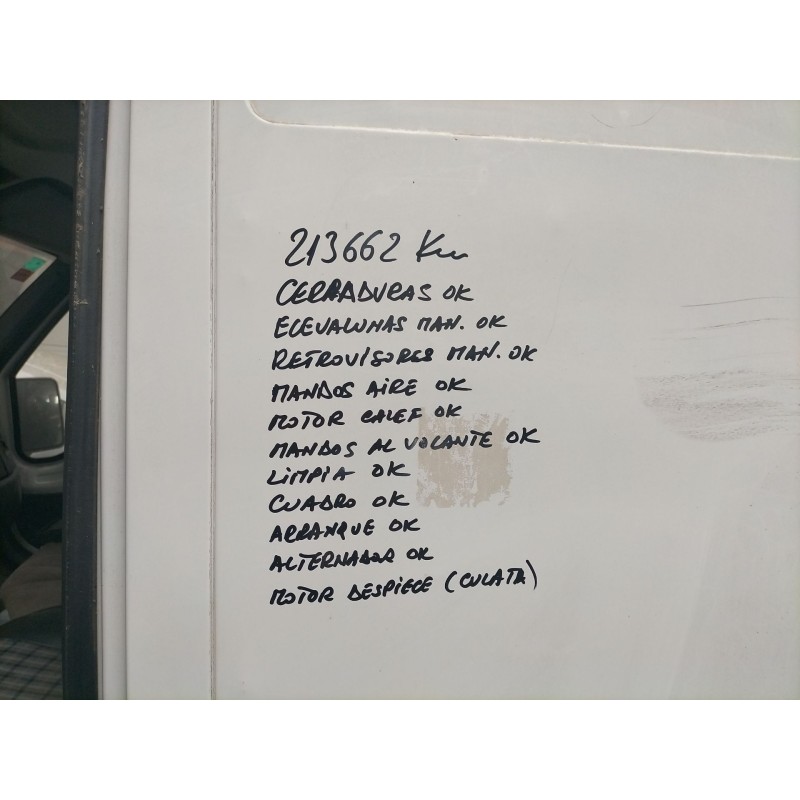 213662 Km
CERRADURAS OK
ELEVALUNAS MAN. OK
RETROVISORES MAN. OK
MANDOS AIRE OK
MOTOR CALEF OK
MANDOS AL VOLANTE OK
LIMPIA OK
CUADRO OK
ARRANQUE OK
ALTERNADOR OK
MOTOR DESPIECE (CULATA)